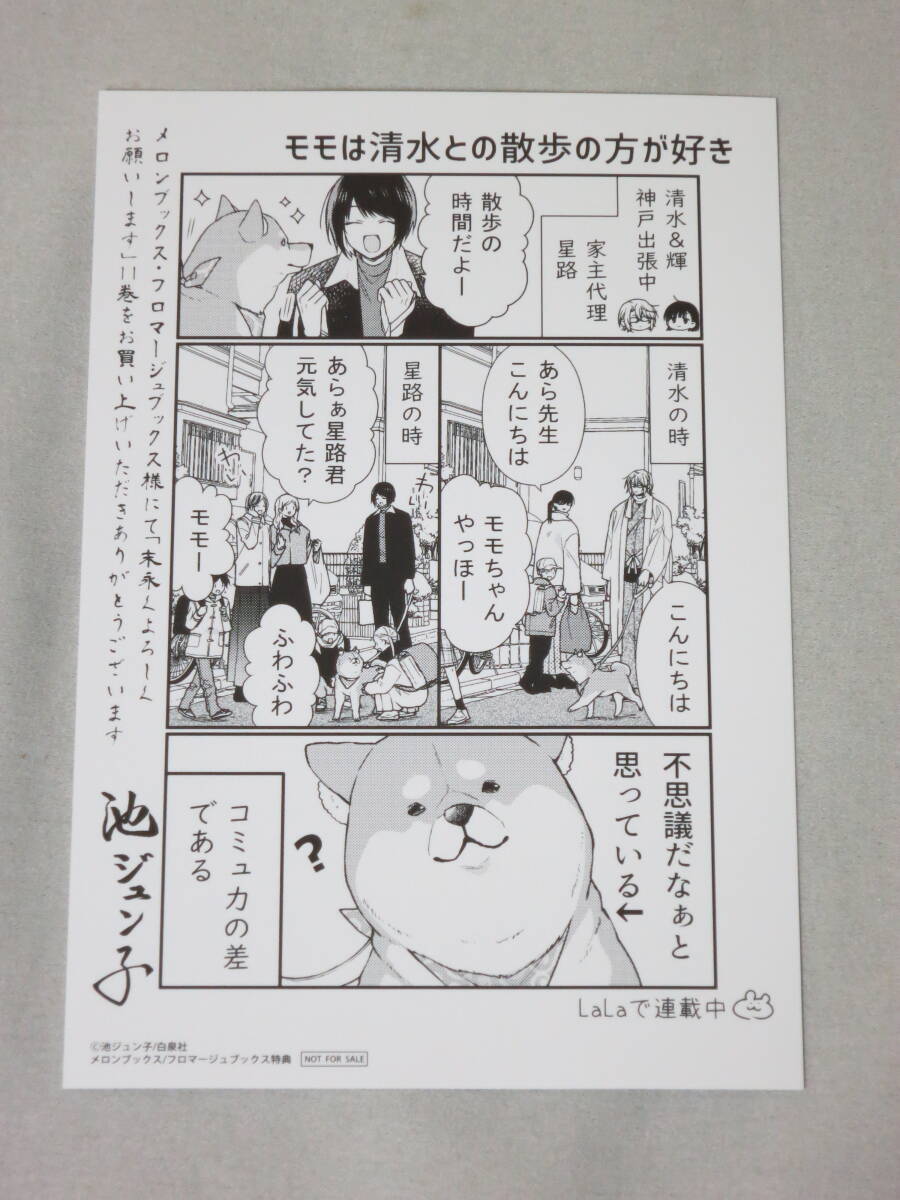 モモは清水との散歩の方が好き
清水&輝
神戸出張中
家主代理
星路
散歩の
時間だよー
清水の時
あら先生
こんにちは
モモちゃん
やっほー
こんにちは
星路の時
あらぁ星路君
元気してた?
わい
モモー
ふわふわ
不思議だなぁと
思っている←
?
コミュ力の差
である
LaLaで連載中
メロンブックス・フロマージュブックス様にて「末永くよろしく
お願いします」11巻をお買い上げいただきありがとうございます
池ジュン子
©池ジュン子/白泉社
メロンブックス/フロマージュブックス特典 NOT FOR SALE